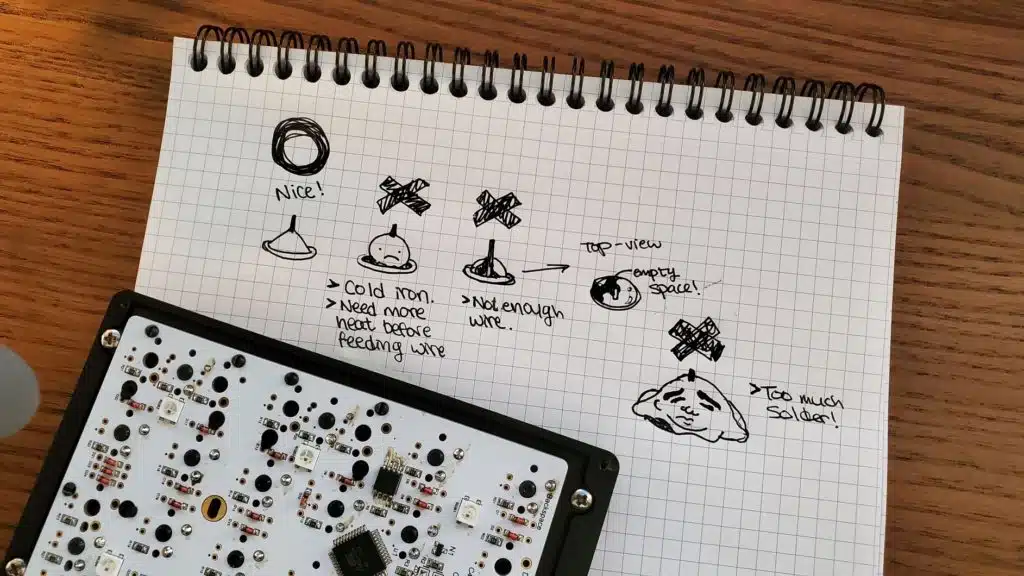 Nice!
> Cold iron.
> Need more
heat before
feeding wire
> Not enough
wire.
Top-view
empty
space!
> Too much
Solder!
Backspace